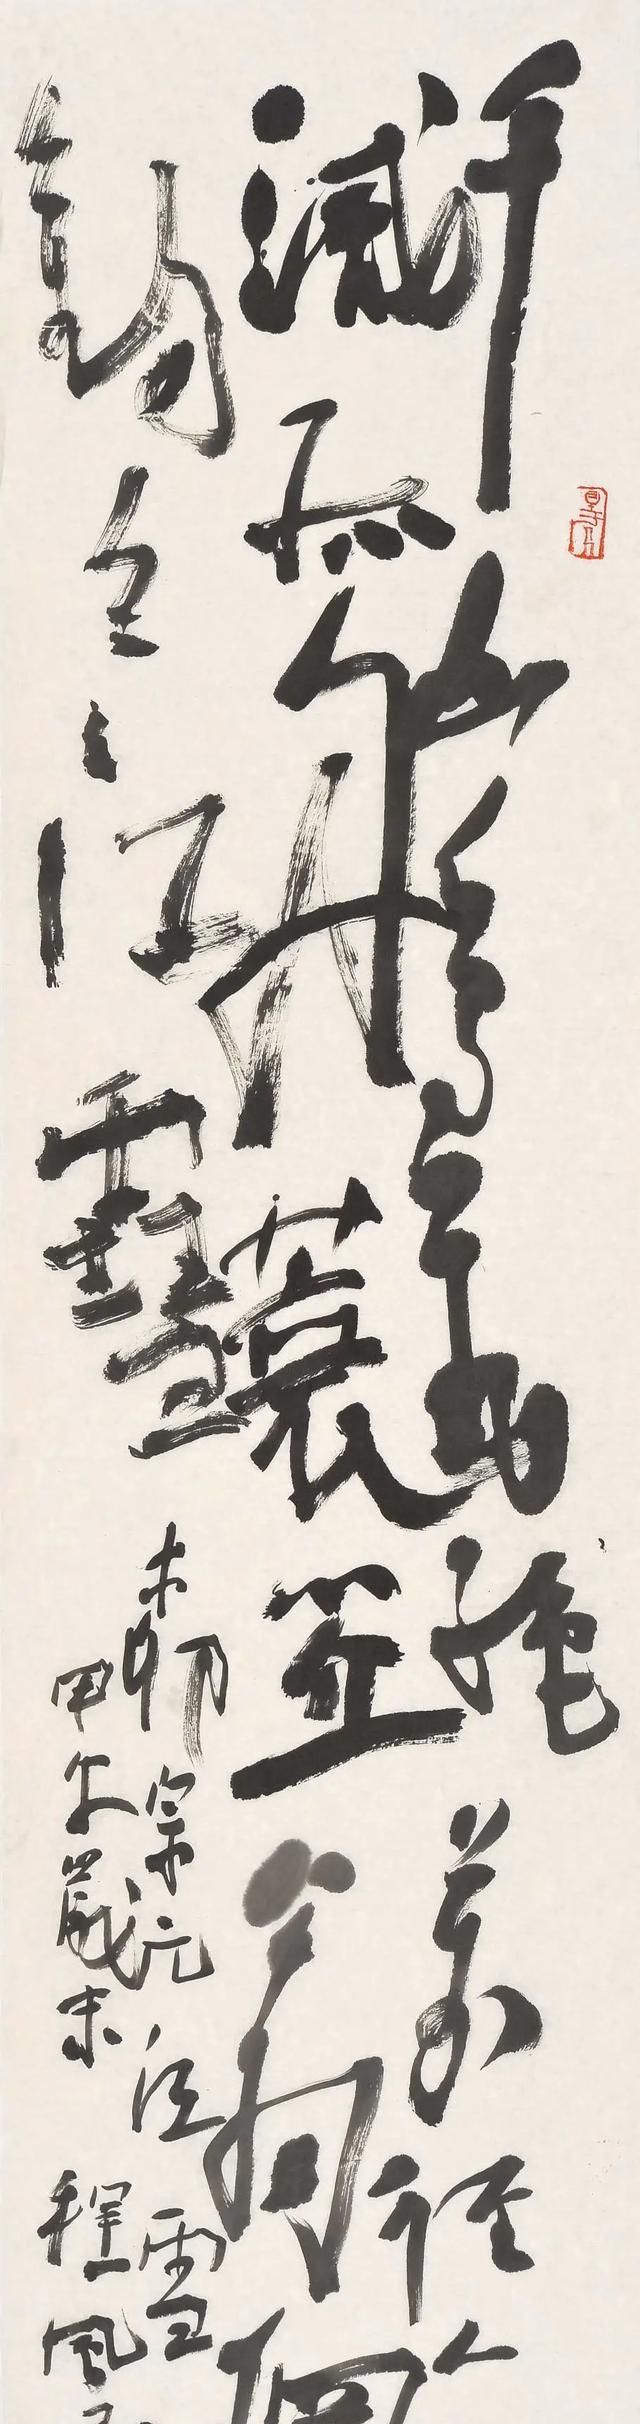 千山鳥飛絕萬徑人
滅孤舟蓑笠翁獨
釣寒江雪
柳宗元江雪
甲午歲末程風